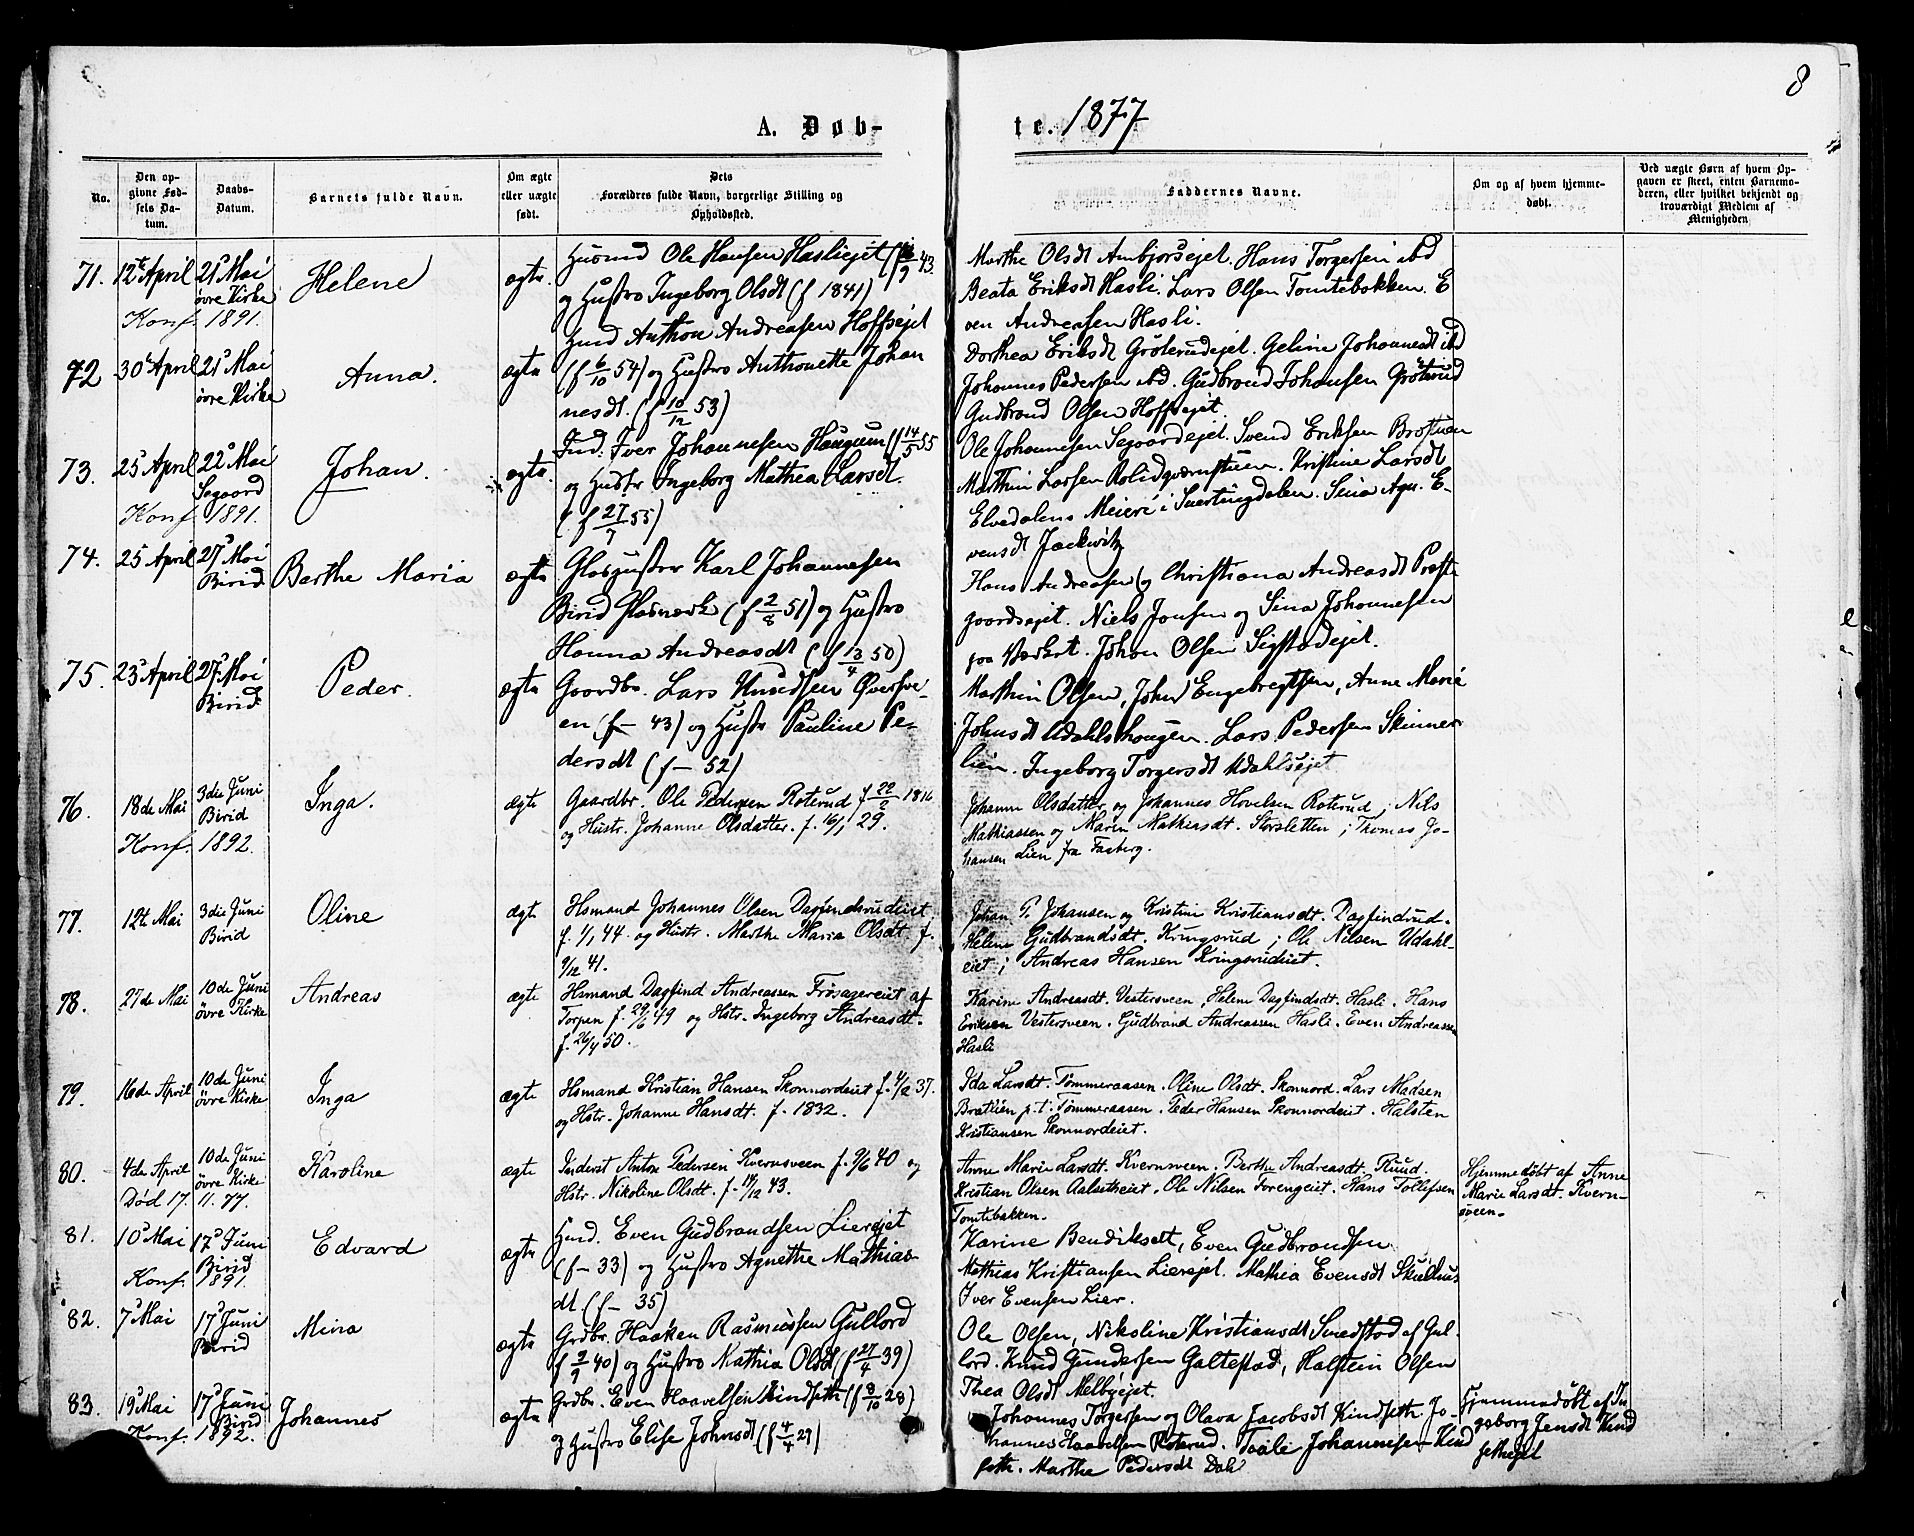 8
A. Døb-
te. 1877
No.
Den op-
givne Fød-
sels Da-
tum.
Daabs-
Datum.
Barnets fulde Navn.
Om ægte
eller uægte
født.
Dets
Forældres fulde Navn, borgerlige Stilling og
Opholdssted.
Faddernes Navne.
Om og af hvem hjemme-
døbt.
Ved uægte Børn af hvem Op-
gaven er skeet, enten Barnemo-
deren, eller hvilket bekjendt og
troværdigt Medlem af
Menigheden
71. 12te April 21s Mai Helene ægte.
øvre Kirke
Konf. 1891.
Husmd Ole Hansen Haslieiet (f 43.
og Hustro Ingeborg Olsdt (f 1841)
Marthe Olsdt Ambjørsejet. Hans Torgersen ibd
Beata Eriksdt Hasli. Lars Olsen Tomtebakken. E
ven Andreassen Hasli.
72 30te April 21s Mai Anna. ægte
øvre Kirke
Hmd Anthon Andreasen Hoffsejet
(f 6/10 54) og Hustro Anthonette Johan
nesdt. (f 10/12 53)
Dorthea Eriksdt Grøterudejet. Geline Johannesdt ibd
Johannes Pedersen ibd. Gudbrand Johansen Grøterud
Gudbrand Olsen Hoffsejet.
73. 25 April 22s Mai Johan. ægte.
Segaard
Konf. 1891.
Ind. Iver Johannesen Haugum (f 14/5 55
og Hustr Ingeborg Mathea Larsdt.
(f 27/7 55)
Ole Johannesen Segaardejet. Svend Eriksen
Marthin Larsen Kristine Larsdt
Elvedalens Meieri i Snertingdalen. Sina Agn. E-
vensdt
74. 25 April 27s Mai Barthe Maria ægte
Birid
Glaspuster Karl Johannesen
Birid Glasværk (f 2/8 51) og Hustro
Hanna Andreasdt (f 13/4 50)
Hans Andreasen og Christiana Andreasdt Præste
gaardsejet. Niels Jonsen og Sina Johannesen
paa Værket. Johan Olsen Sigstadejet.
75. 23s April 27s Mai Peder. ægte
Birid
Gaardbr. Lars Knudsen Øversve-
en (f — 43) og Hustr Pauline Pe-
dersdt (f — 52)
Marthin Olsen, John Engebregtsen, Anne Marie
Johnsdt Udahlshaugen. Lars Pedersen Skinner
lien. Ingeborg Torgersdt Udahlsejet
76. 18de Mai 3die Juni Inga. ægte
Birid
Konf. 1892.
Gaardbr. Ole Pedersen Roterud f 22/2 1816
og Hustr. Johanne Olsdatter. f. 16/1 29.
Johanne Olsdatter og Johannes Hovelsen Roterud; Nils
Mathiassen og Maren Mathiasdt. Storsletten; Thomas Jo-
hansen Lien fra Faaberg.
77. 12te Mai 3die Juni Oline ægte
Birid
Hsmand Johannes Olsen Dagfindsrudeiet
f. 1/1 44 og Hustr. Marthe Maria Olsdt f.
9/12 41.
Johan P. Johansen og Kristine Kristiansdt. Dagfindrud.
Helene Gudbrandsdt. Kringsrud; Ole Nilsen Udahl-
eiet; Andreas Hansen Kringsrudeiet.
78. 27de Mai 10de Juni Andreas ægte
øvre Kirke
Hsmand Dagfind Andreassen Frøsagereiet af
Torpen f. 29/6 49 og Hstr. Ingeborg Andreasdt.
f. 26/4 50.
Karine Andreasdt. Vestersveen, Helene Dagfindsdt. Hasli. Hans
Eriksen Vestersveen. Gudbrand Andreassen Hasli. Even Andreassen
Hasli
79. 16de April 10de Juni Inga ægte
øvre Kirke
Hsmand Kristian Hansen Skonnordeiet f. 4/2 37.
og Hstr. Johanne Hansdt. f. 1832.
Ida Larsdt. Tømmeraasen. Oline Olsdt. Skonnord. Lars Madsen
Brætlien p.t. Tømmeraasen. Peder Hansen Skonnordeiet. Halsten
Kristiansen Skonnordeiet.
80. 4de April 10de Juni Karoline ægte
øvre Kirke
Død 17. 11. 77.
Inderst Anton Pedersen Kvernsveen f. 9/6 40 og
Hstr. Nikoline Olsdt. f. 14/12 43.
Anne Marie Larsdt. Kvernsveen. Berthe Andreasdt. Ruud.
Kristian Olsen Aalsetheiet. Ole Nilsen Forengeiet. Hans Tollefsen
Tomtebakken.
Hjemmedøbt af Anne
Marie Larsdt. Kvern-
sveen.
81. 10s Mai 17s Juni Edvard ægte
Birid
Konf. 1891.
Hmd. Even Gudbrandsen Lierejet
(f — 33) og Hustro Agnethe Mathias
dt (f — 35)
Karine Bendiksdt, Even Gudbrandsen
Mathias Kristiansen Lierejet. Mathia Evensdt
Iver Evensen Lier.
82. 7s Mai 17s Juni Mina ægte
Birid
Grdbr. Haaken Rasmussen Gullord
(f 2/9 40) og Hustro Mathia Olsdt (f 27/4 39)
Ole Olsen, Nikoline Kristiansdt Smedstad af Gul-
lord. Knud Gundersen Galtestad, Halstein Olsen
Thea Olsdt Melbyejet.
83. 19s Mai 17s Juni Johannes ægte
Birid
Konf. 1892.
Grdbr. Even Haavelsen Kindseth (f 8/10 28)
og Hustro Elise Johnsdt (f 4/4 29)
Johannes Torgersen og Olava Jacobsdt Kindseth. Jo-
hannes Haavelsen Roterud. Taale Johannesen Kind
seth. Marthe Pedersdt Dahl
Hjemmedøbt af In-
geborg Jensdt Kind
sethejet